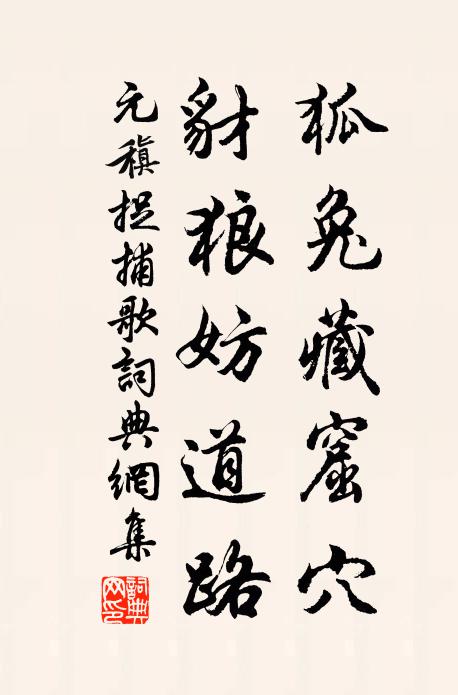 狐兔藏窟穴
豺狼妨道路
元稹捉捕歌詞典網集
詞典網印